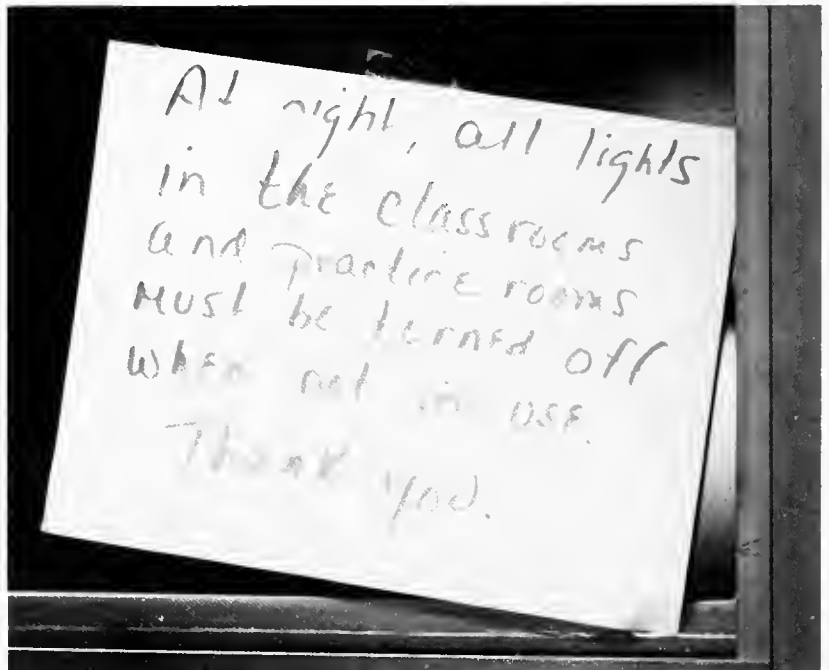 At night, all lights
in the classrooms
and practice rooms
must be turned off
when not in use.
Thank you.